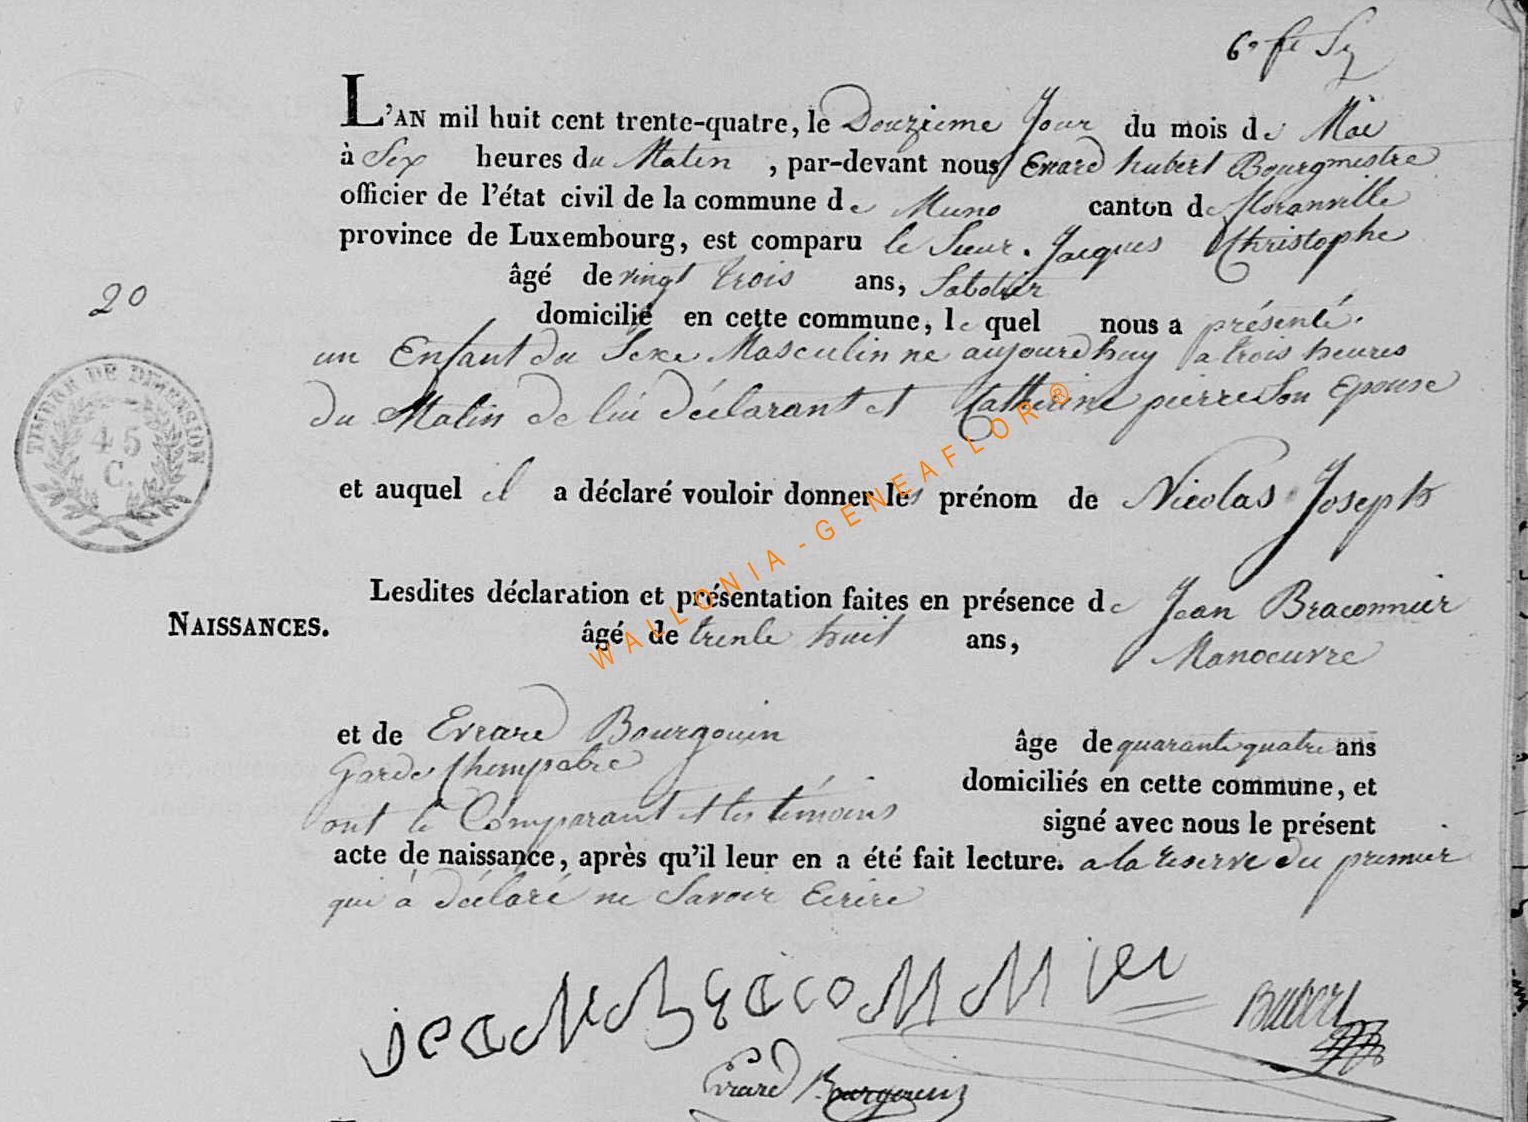 L'AN mil huit cent trente-quatre, le Douzieme Jour du mois de Mai
à Six heures du Matin, par-devant nous Evrard hubert Bourgmestre
officier de l'état civil de la commune de Muno canton de floranville
province de Luxembourg, est comparu le Sieur. Jacques Christophe
âgé de vingt trois ans, Sabotier
20
domicilié en cette commune, le quel nous a présenté.
un Enfant du Sexe Masculin ne aujourdhuy a trois heures
du Matin de lui déclarant et Catherine pierre Son Epouse
TIMBRE DE DIMENSION
45
C.
et auquel il a déclaré vouloir donner les prénom de Nicolas Joseph
Lesdites déclaration et présentation faites en présence de Jean Braconnier
NAISSANCES.
âgé de trente huit ans, Manoeuvre
et de Evrard Bourgouin âge de quarante quatre ans
Garde Champatre domiciliés en cette commune, et
ont le Comparant et les témoins signé avec nous le présent
acte de naissance, après qu'il leur en a été fait lecture. a la reserve du premier
qui à déclaré ne Savoir Ecrire
jean Braconnier
Evrard Bourgouin
WALLONIA-GENEAFLOR®